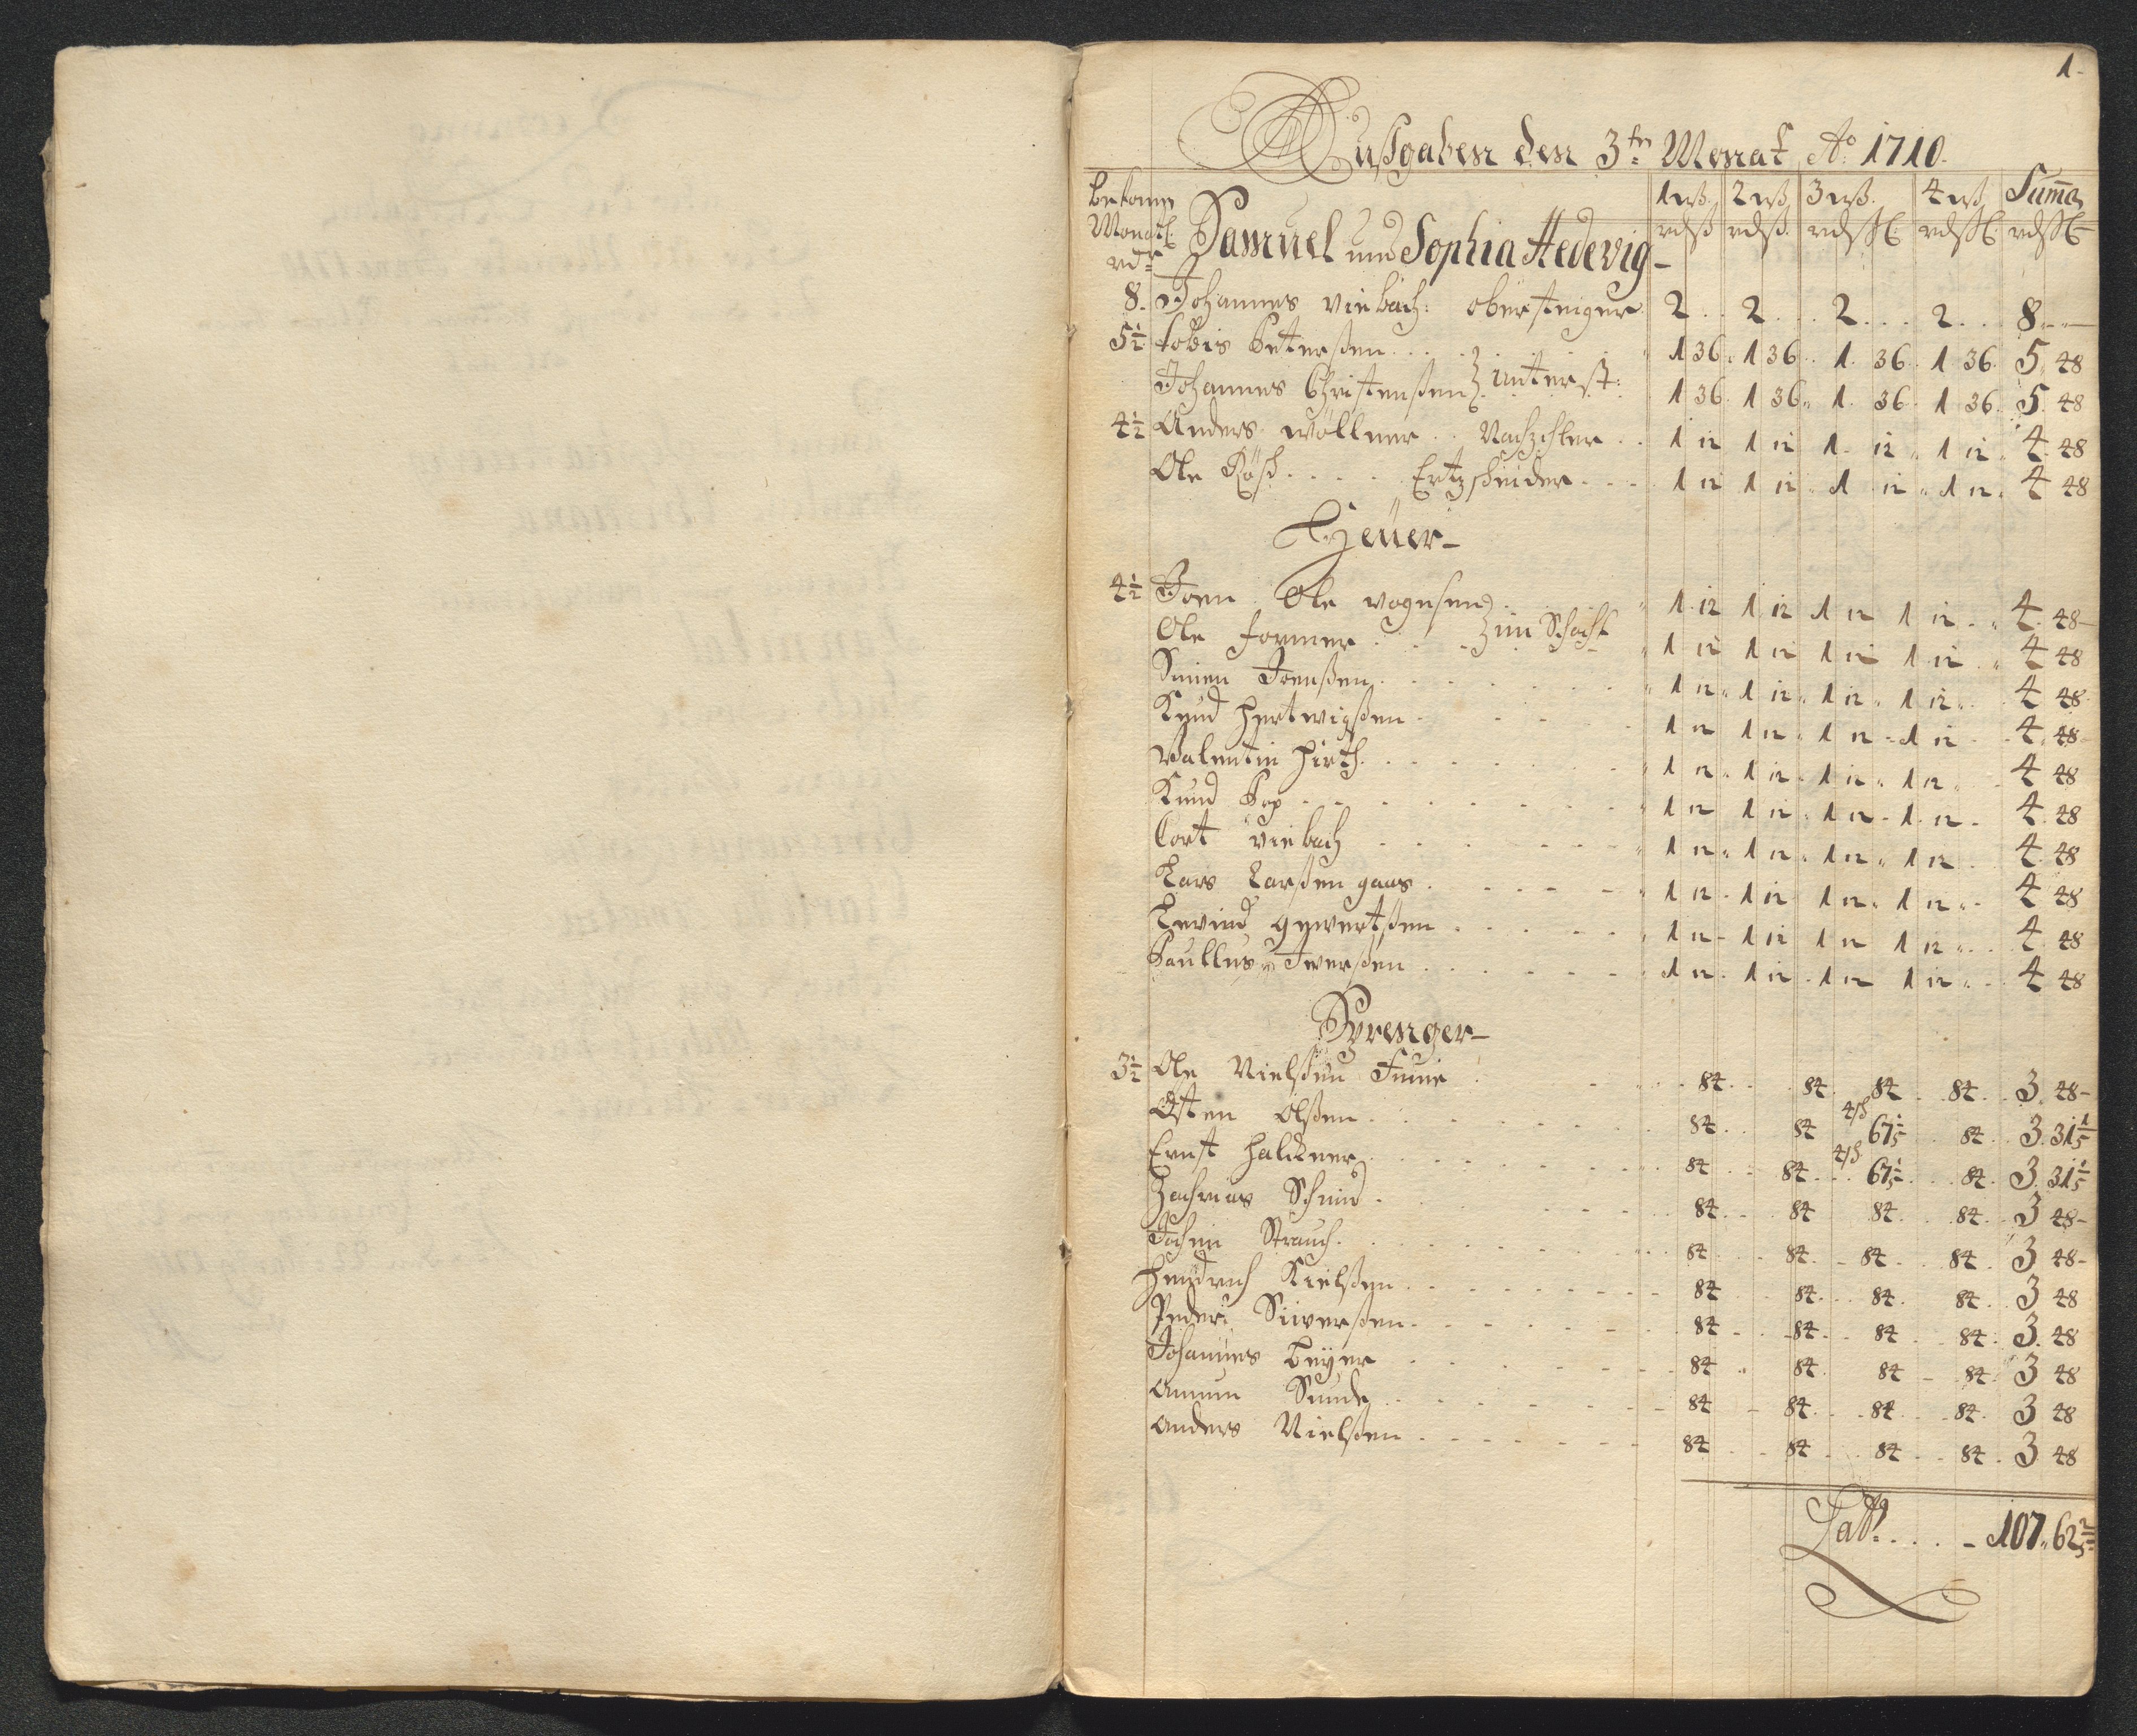 1.
Außgaben den 3ten Monat Ao 1710.
bekomn Monatl: rdr
1 wß. 2 wß 3 wß. 4 wß Summa
Samuel und Sophia Hedevig
rdß rdß rdßl: rdßl: rdßl
8. Johannes Viebach: obersteiger 2 . . 2 . . 2 . . 2 . . 8 . . —
5½ Tobis Peterßen . . . 1 36. 1 36. 1. 36. 1 36. 5. 48
Johannes Christenßen } unterst: 1 36. 1 36. 1. 36. 1 36. 5. 48
4½ Anders Wöllner . . Nachzehler . . 1 12 1 12 1. 12. 1 12. 4. 48
Ole Röch . . . . Ertzscheider . . . 1 12 1 12. 1 12. 1 12. 4 48
Heuer
4½ Joen Ole Vognsen 1. 12 1 12 1 12 1 12. 4. 48
Ole former . . . } im Schacht 1 12 1 12 1 12 1 12. 4 48
Simen Joenßen . . . 1 12. 1 12. 1 12. 1 12. 4 48
Knud Hertwigßen . . . 1 12 1 12. 1 12 . 1 12 . 4. 48
Valentin Hirth . . . 1 12. 1 12. 1 12. 1 12. 4 48
Knud Pep . . . 1 12 1 12. 1 12. 1. 12. 4. 48
Cort Viebach . . . 1 12. 1 12. 1 12. 1 12. 4. 48
Lars Larßen gaas . . . 1 12. 1 12 1 12. 1 12. 4 48
Tevind gywertßen . . . 1 12. 1 12 1 12 1 12. 4. 48
Paullus Iverßen . . . 1 12. 1 12. 1 12 1 12. 4 48
Sprenger
3½ Ole Nielßen . . . 84. . 84. 84 . 84. . 3. 48
Östen Olßen . . . 84. . 84 4/ß 67 1/5 . 84. . 3. 31 1/5
Ernst Haldner . . . 84 . . 84. . 4/ß 67 1/5 . . 84. 3. 31 1/5
Zachrias Schmid . . . 84. . 84 84. . 84. . 3 48
Jochim Strauch . . . 84 . . 84. . 84. . 84. 3 48
Hendrich Kielßen . . . 84 . . 84. . 84. 84. . 3 48
Peder Siiverßen . . . 84 . . 84. . 84 . 84. 3. 48
Johannes Beyer . . . 84 . 84. 84 . 84. 3 48
Amun Sunde . . . 84 . 84. . 84 . . 84. 3 48
Anders Nielßen . . . 84 . . 84. . 84 . . 84. 3 48
Latt: . . . . 107. 62 2/5